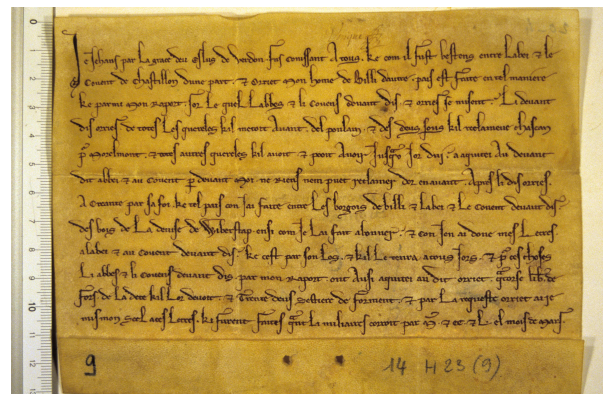 Je Jehans par la grace deu esluis de Verdon fais conissant a tous . ke com il fust bestens entre l'abei & le
Covent de chastillon d'une part . & Orriet mon home de Billi d'autre . pais est faite en tel maniere
ke parmi mon raport sor le quel l'abbes & li covens devant dis . & orries se misent . Li devant
dis orries de totes les quereles kil metoit avant . del poulain & des dous sous kil reclameit chascan
p Morlmont . & totes autres quereles kil avoit & pooit avoir jusqu'a jor dui . a aquitei au devant
dit abbei & au covent p devant moi ne riens n'en puet reclamer d'or en avant . Apres li dis orries .
A creante par sa foi . ke tel pais com j'ai faite entre les borgois de billi & l'abei & le covent devant dis
des bors de la devise de Wiberstap ensi com je l'ai fait abonner . & con j'en ai done mes lettres
a l'abei & au covent devant dis . ke c'est par son los . & kil le tenra a tous jors . & p ces choses
li abbes & li covens devant dis . par mon raport . ont ausi aquitei au dit orriet . quatorse lib .
fors de la dete kil lor devoit . & trente deus sestiere de forment . & par la requeste orriet ai je
mis mon seel a ces lettres . ki furent faites quant li miliaires coroit par M . & cc . & L . el mois de mars .
9
14 H 23 (9)
0
1
2
3
4
5
6
7
8
9
10
11
12